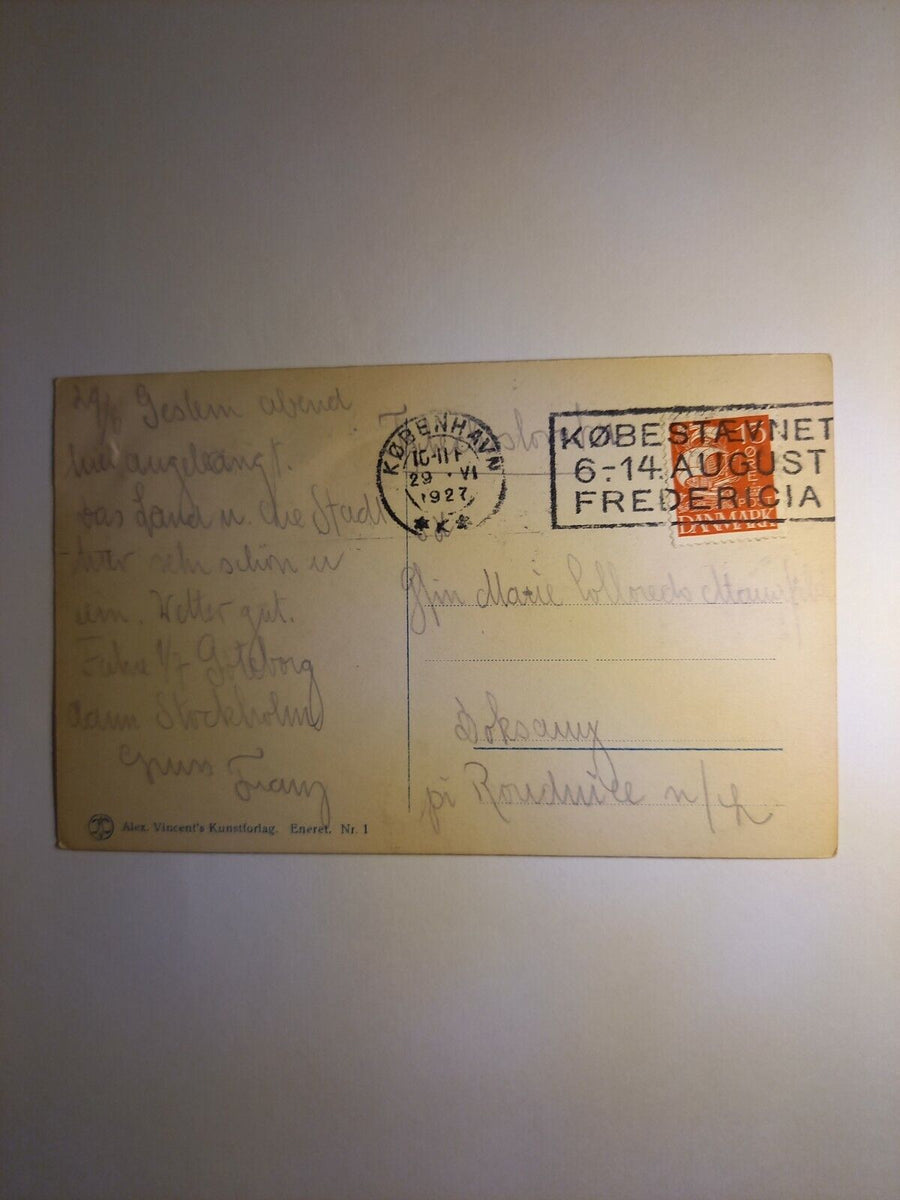 29/6 Gestern abend
hier angelangt.
Das Land u. die Stadt
hier sehr schön u
Wetter gut.
Fahre 1/7 Göteborg
dann Stockholm
Gruss Franz
Alex. Vincent's Kunstforlag. Eneret. Nr. 1
KØBENHAVN
29 VI
1927
* K *
KØBESTÆVNET
6-14 AUGUST
FREDERICIA
15
DANMARK
Gfin Marie Colloredo
Doksany
pi Roudnice n/L